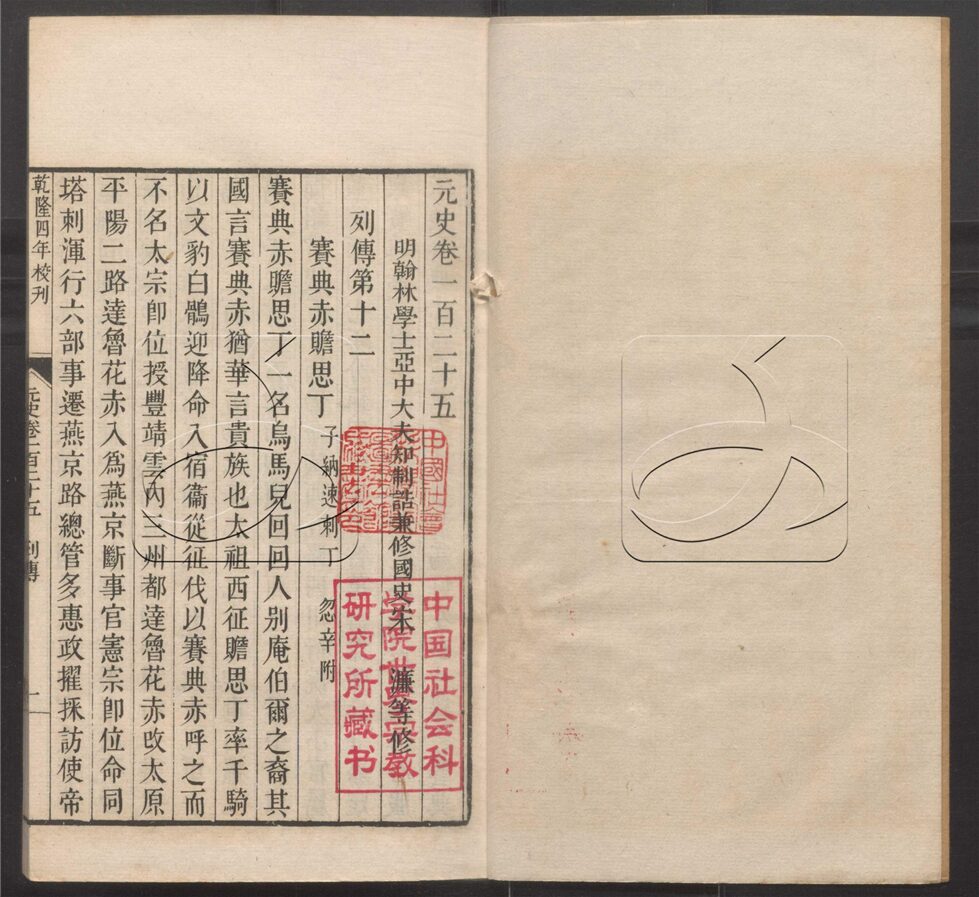 元史卷一百二十五
明翰林學士亞中大夫知制誥兼修國史宋濂等修
列傳第十二
賽典赤贍思丁 子納速剌丁 忽辛附
賽典赤贍思丁一名烏馬兒回回人别庵伯爾之裔其
國言賽典赤猶華言貴族也太祖西征贍思丁率千騎
以文豹白鶻迎降命入宿衞從征伐以賽典赤呼之而
不名太宗卽位授豐靖雲內三州都達魯花赤改太原
平陽二路達魯花赤入爲燕京斷事官憲宗卽位命同
塔剌渾行六部事遷燕京路總管多惠政擢採訪使帝
乾隆四年校刊
元史卷一百二十五 列傳 一
中国社会科
学院世界宗教
研究所藏书